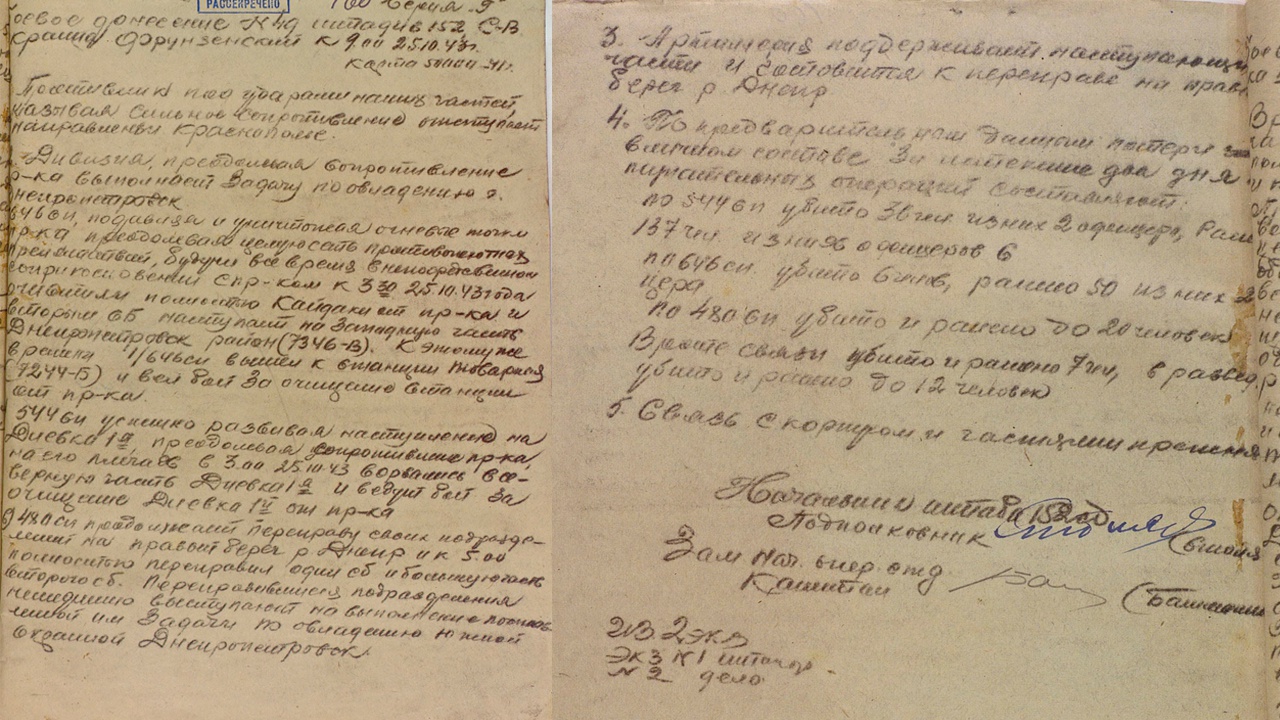 РАССЕКРЕЧЕНО
Серия "Г"
боевое донесение № 49 штадив 152 С-В
Фрунзенский к 9.00 25.10.43г.
Карта 50000-41г.
Противник под ударами наших частей,
оказывая сильное сопротивление отступает
направлении Краснополье.
Дивизия, преодолевая сопротивление
пр-ка выполняет задачу по овладению г.
Днепропетровск
646сп, подавляя и уничтожая огневые точки
пр-ка, преодолевая целую сеть противопехотных
препятствий, будучи всё время в непосредственном
соприкосновении с пр-ком к 3 30 25.10.43 года
очистили полностью Кайдаки от пр-ка и
вторым сб наступает на западную часть
Днепропетровск район (7346-В). К этому же
времени 1/646сп вышел к станции товарная
(7244-Б) и вел бой за очищение станции
от пр-ка.
544сп успешно развивая наступление на
Диевка 1я преодолевая сопротивление пр-ка,
на его плечах в 3.00 25.10.43 ворвались в се-
верную часть Диевка 1я и ведут бой за
очищение Диевка 1я от пр-ка
480сп продолжает переправу своих подразде-
лений на правый берег р Днепр и к 5.00
полностью переправил один сб и большую часть
второго сб. Переправившиеся подразделения
немедленно выступают на выполнение постав-
ленной им задачи по овладению южной
окраиной Днепропетровск.
3. Артиллерия поддерживает наступающие
части и готовится к переправе на прав
берег р. Днепр
4. По предварительным данным потери
в личном составе за истекшие два дня
наступательных операций составляют:
по 544сп убито 38 чел из них 2 офицера, ран
137 чел из них офицеров 6
по 646сп. убито 6 чел, ранено 50 из них 2
цера
по 480сп убито и ранено до 20 человек
В роте связи убито и ранено 7 чел, в развед.
убито и ранено до 12 человек
5. Связь с корпусом и частями
Начальник штаба 152сд
Подполковник
Зам Нач. опер отд
Капитан
из 2 экз
экз №1 штакор
№ 2 дело